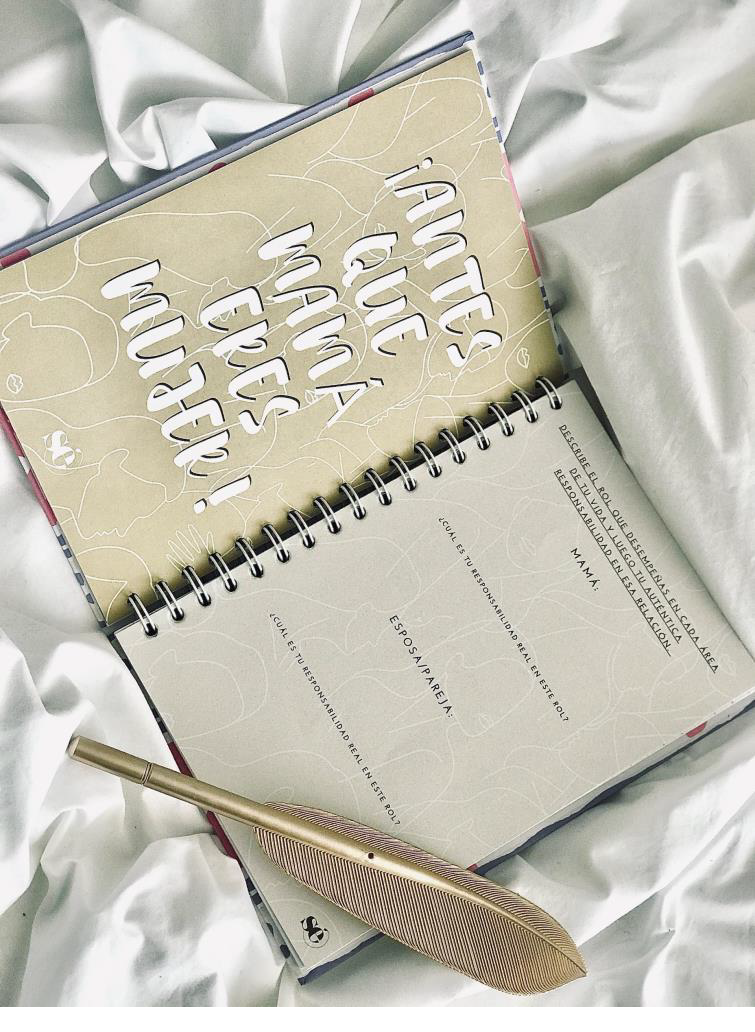 ¡ANTES
QUE
MAMÁ
ERES
MUJER!
sé
DESCRIBE EL ROL QUE DESEMPEÑAS EN CADA ÁREA
DE TU VIDA Y LUEGO TU AUTÉNTICA
RESPONSABILIDAD EN ESA RELACIÓN.
MAMÁ:
¿CUÁL ES TU RESPONSABILIDAD REAL EN ESTE ROL?
ESPOSA/PAREJA:
¿CUÁL ES TU RESPONSABILIDAD REAL EN ESTE ROL?
sé